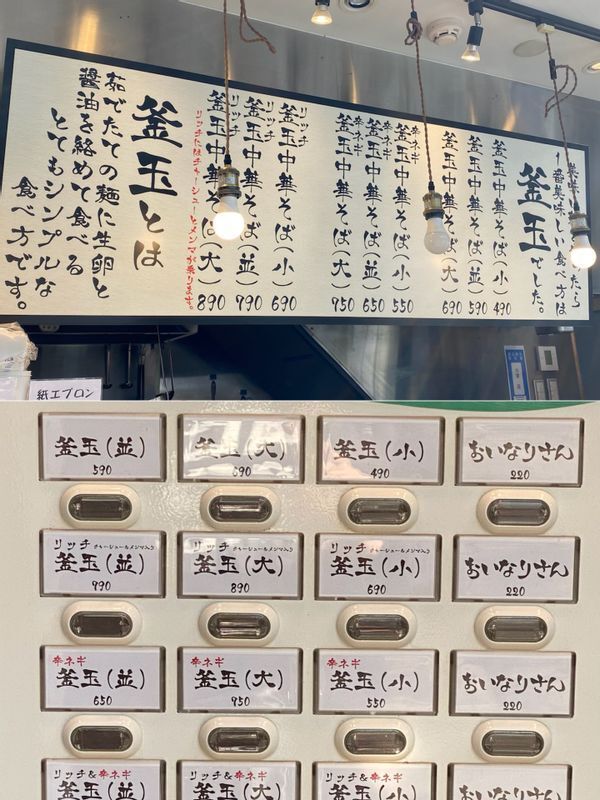 美味い
たら
1番美味しい食べ方は
釜玉でした。
釜玉中華そば(小) 490
釜玉中華そば(並) 590
釜玉中華そば(大) 690
辛ネギ 釜玉中華そば(小) 550
辛ネギ 釜玉中華そば(並) 650
辛ネギ 釜玉中華そば(大) 750
リッチ 釜玉中華そば(小) 690
リッチ 釜玉中華そば(並) 790
リッチ 釜玉中華そば(大) 890
リッチにはチャーシューとメンマが乗ります。
釜玉とは
茹でたての麺に生卵と
醤油を絡めて食べる
とてもシンプルな
食べ方です。
紙エプロン
釜玉(並)
590
釜玉(大)
690
釜玉(小)
490
おいなりさん
220
リッチ チャーシュー&メンマ入り
釜玉(並)
790
リッチ チャーシュー&メンマ入り
釜玉(大)
890
リッチ チャーシュー&メンマ入り
釜玉(小)
690
おいなりさん
220
辛ネギ
釜玉(並)
650
辛ネギ
釜玉(大)
750
辛ネギ
釜玉(小)
550
おいなりさん
220
リッチ&辛ネギ
釜玉(並)
リッチ&辛ネギ
釜玉(大)
リッチ&辛ネギ
釜玉(小)
おいなりさん